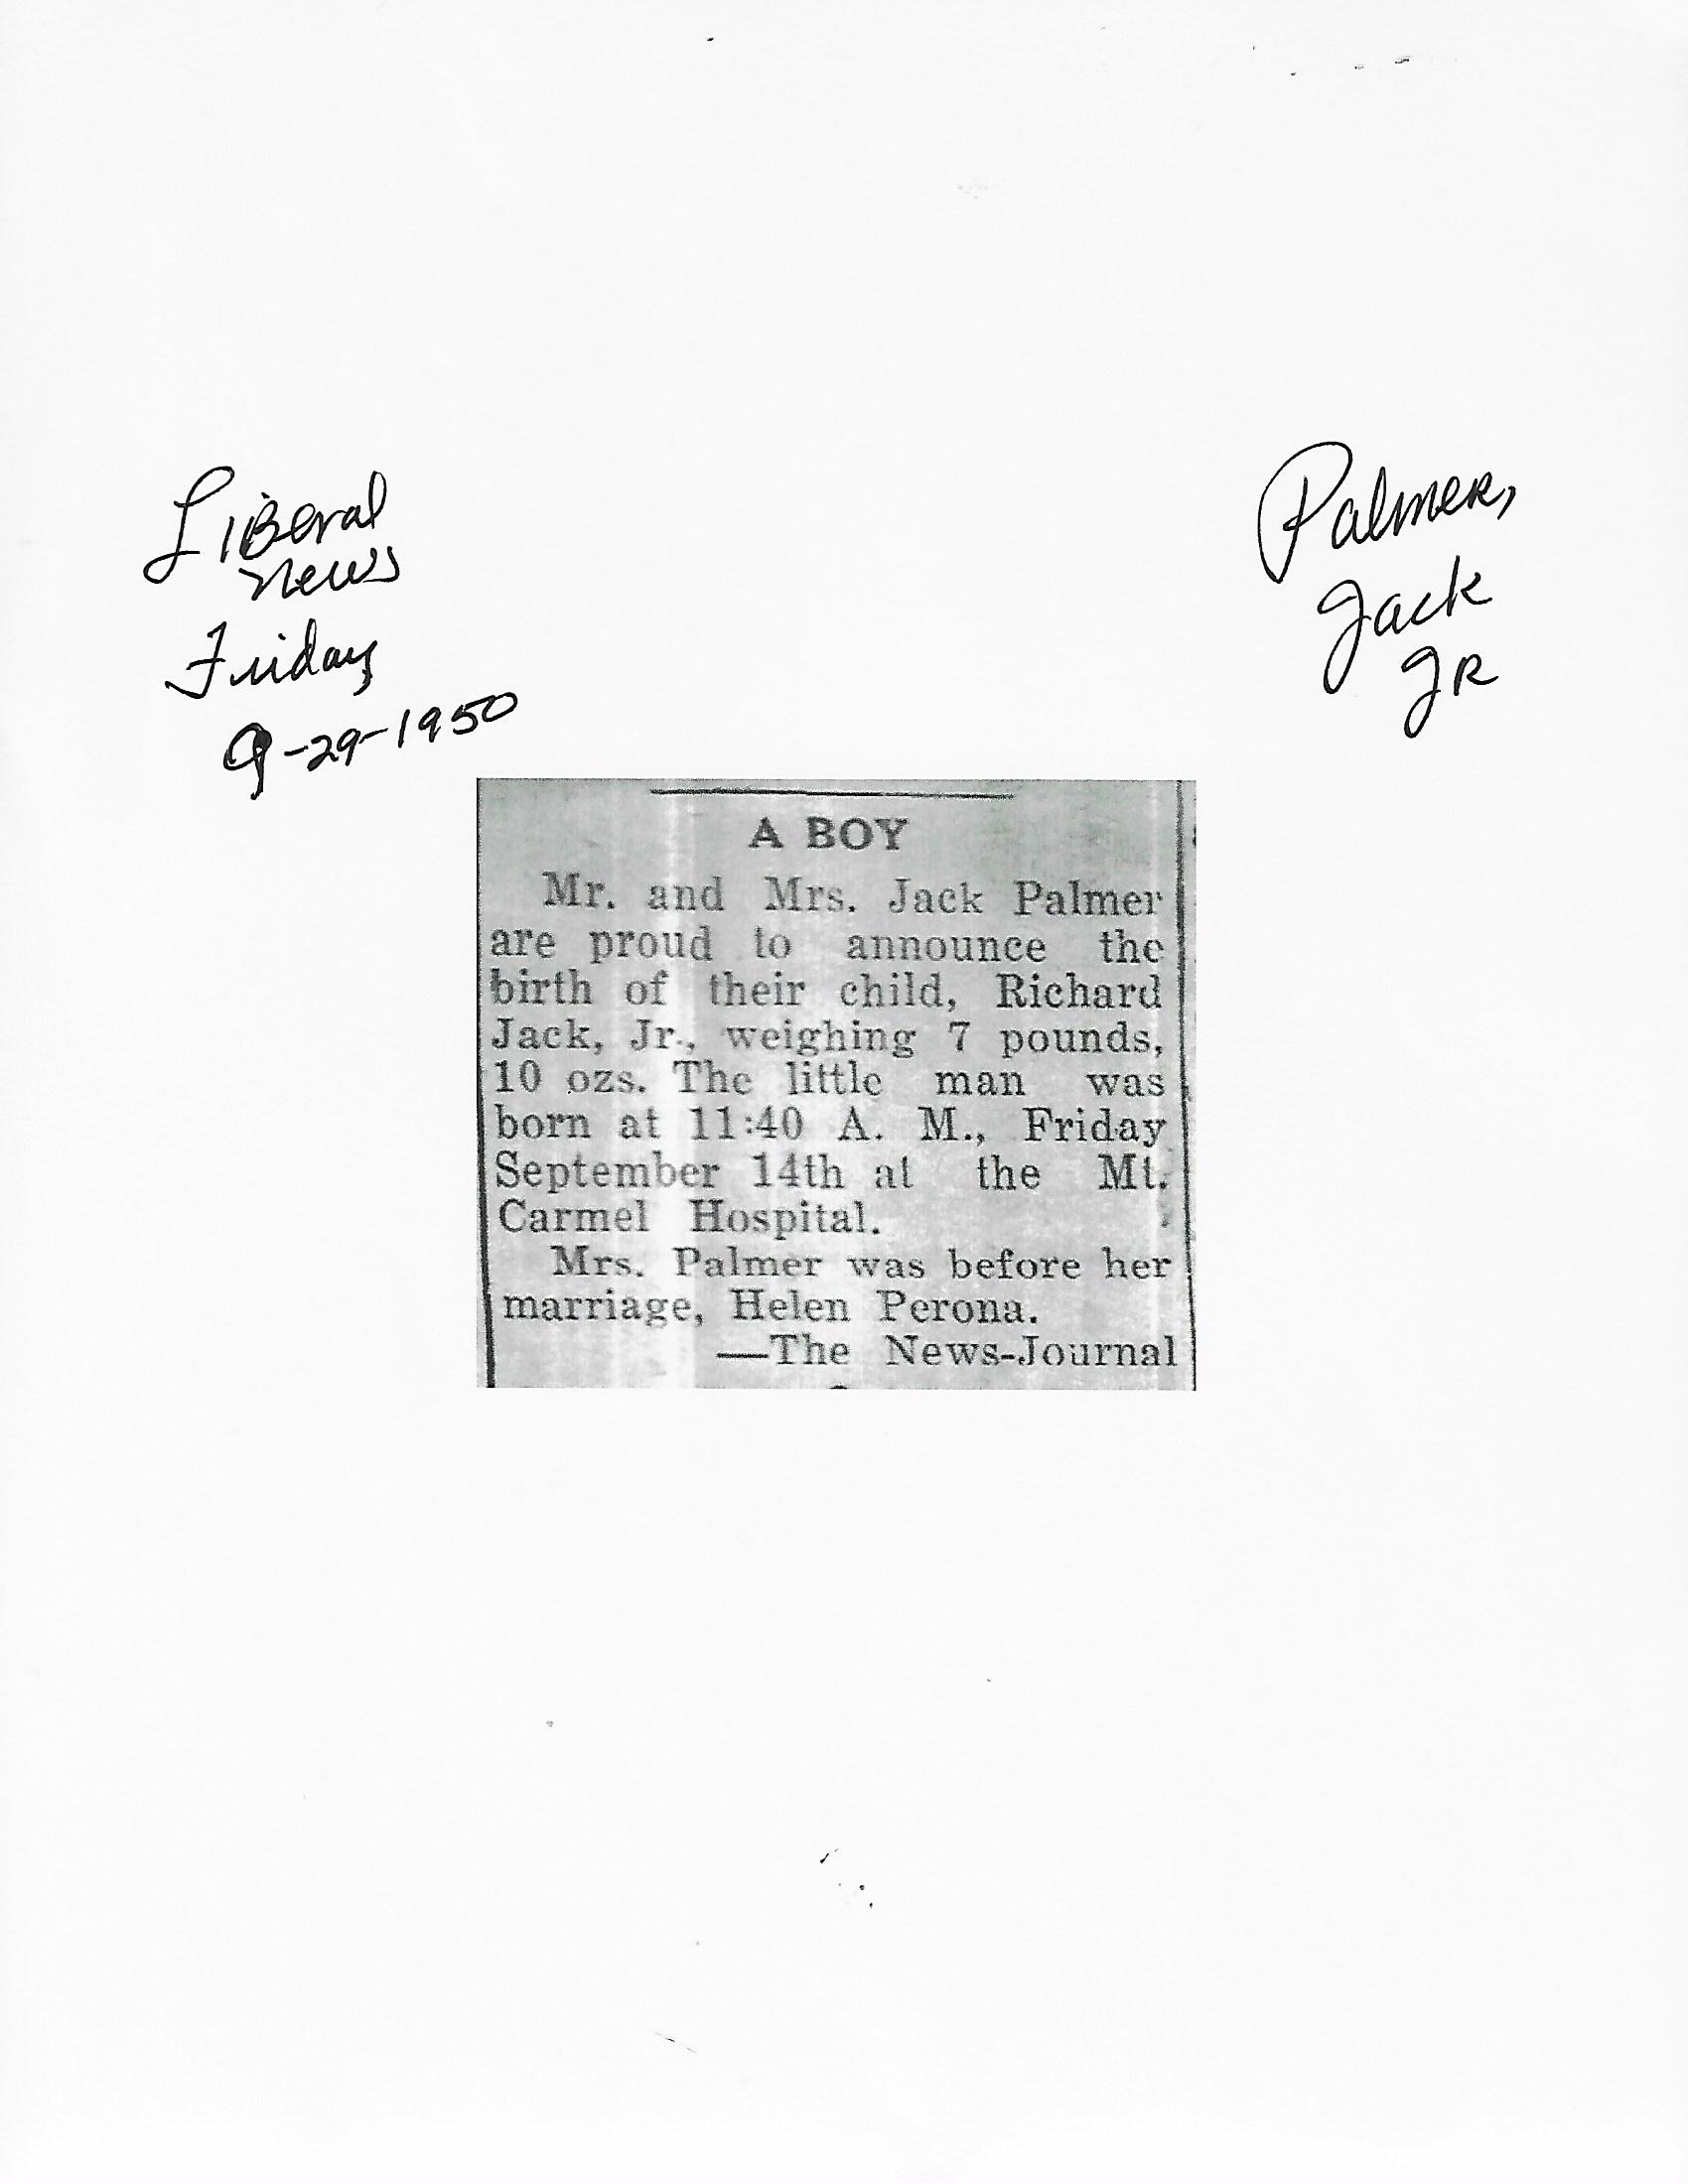 Liberal
News
Friday
9-29-1950
Palmer,
Jack
JR
A BOY
Mr. and Mrs. Jack Palmer
are proud to announce the
birth of their child, Richard
Jack, Jr., weighing 7 pounds,
10 ozs. The little man was
born at 11:40 A. M., Friday
September 14th at the Mt.
Carmel Hospital.
Mrs. Palmer was before her
marriage, Helen Perona.
—The News-Journal